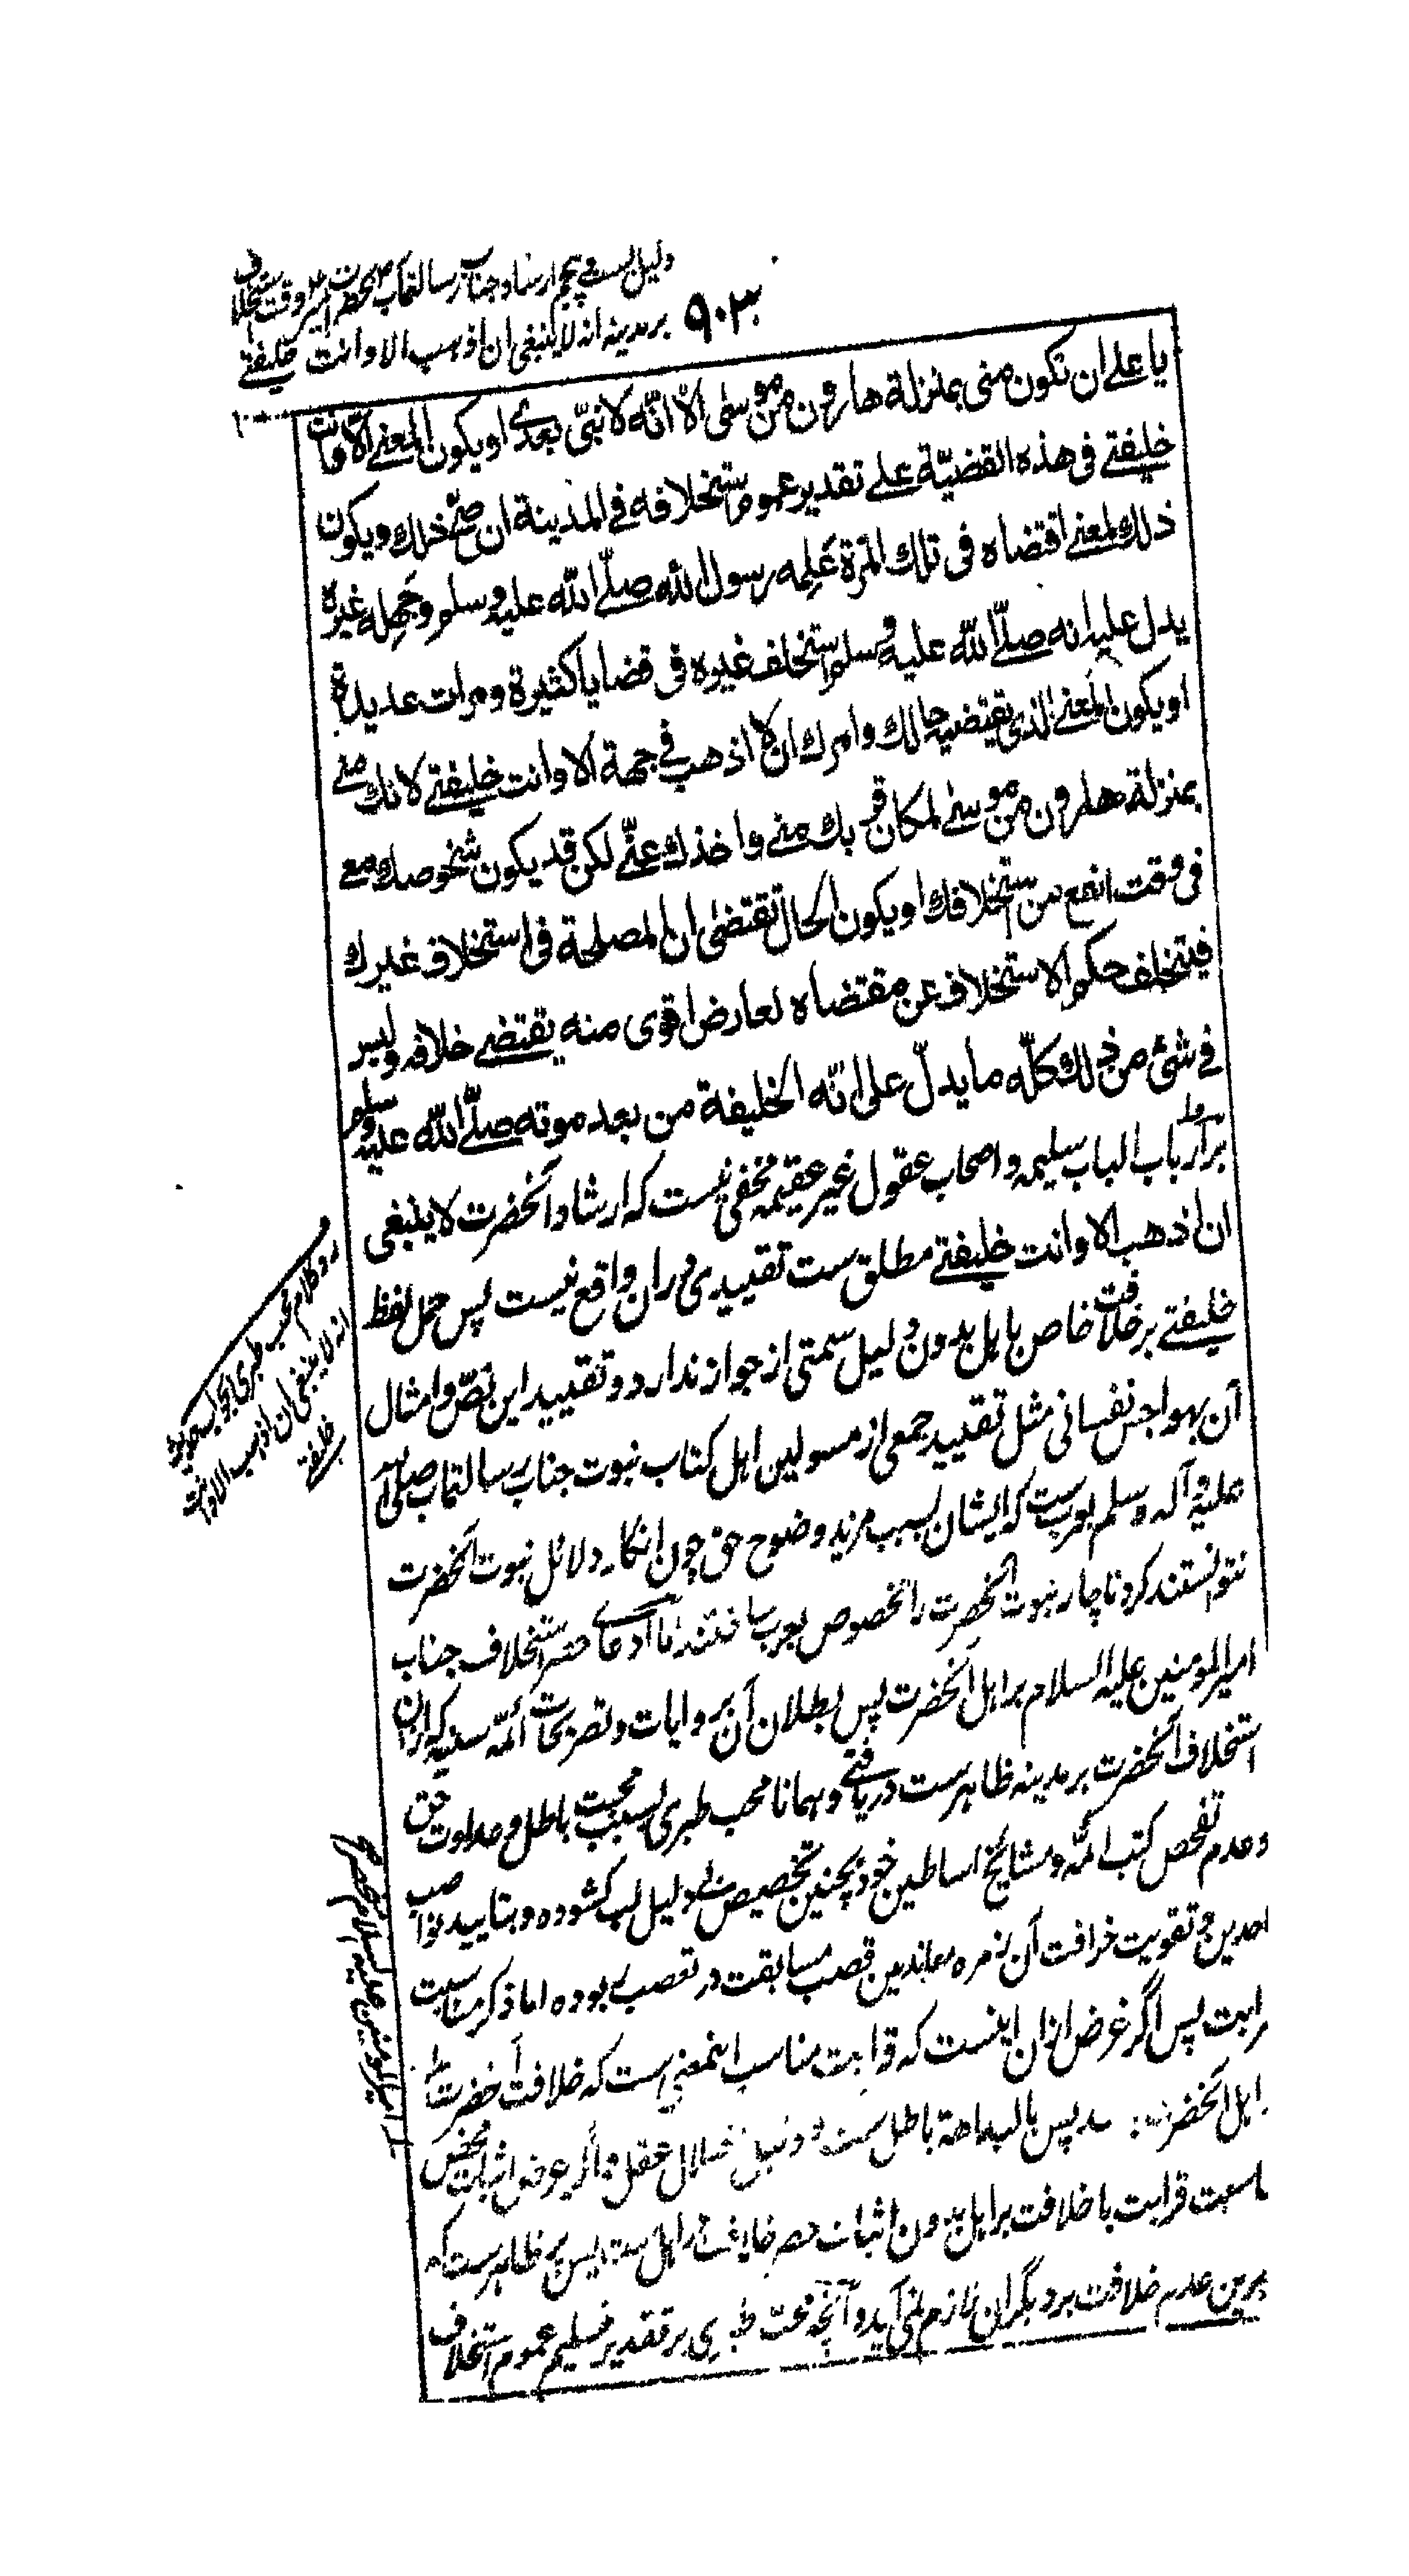 دلیل بست و پنجم ارشاد جناب رسالتمآب بحضرت امیر وقت استخلاف
بر مدینه انه لا ینبغی ان اذهب الا و انت خلیفتے
۹۰۳
یا علے ان تکون منی بمنزلة هارون من موسٰی الّا انّه لا نبیّ بعدی او یکون المعنے الّا و انت
خلیفتے فی هذه القضیّة علے تقدیر عموم استخلافه فے المدینة ان صحّ ذلك و یکون
ذلك لمعنے اقتضاه فی تلك المرّة عَلِمه رسول اللّه صلّے اللّه علیه و سلم و جَهِله غیره
یدل علیه انه صلّے اللّه علیه و سلم استخلف غیره فی قضایا کثیرة و مرات عدیدة
او یکون المعنے الذی یقتضیه حالك و امرك ان لا اذهب فے جهة الا و انت خلیفتے لانك منے
بمنزلة هارون من موسٰے لمکان قربك منے و اخذك عنّے لکن قد یکون شخوصك معے
فی وقت انفع من استخلافك او یکون الحال تقتضی ان المصلحة فی استخلاف غیرك
فیتخلف حکم الاستخلاف عن مقتضاه لعارض اقوی منه یقتضے خلافه و لیس
فے شئ من ذلك کلّه ما یدلّ علی انّه الخلیفة من بعد موته صلّے اللّه علیه و سلم
بر ارباب الباب سلیمه و اصحاب عقول غیر عقیمه مخفی نیست که ارشاد آنحضرت لا ینبغی
ان اذهب الا و انت خلیفتے مطلق ست تقییدی در ان واقع نیست پس حمل لفظ
خلیفتے بر خلافت خاص باهل بدون دلیل سمتی از جواز ندارد و تقیید این نصّ و امثال
آن بهواجس نفسانی مثل تقیید جمعی از مسولین اهل کتاب نبوت جناب رسالتمآب صلی الله
علیه و آله و سلم بعرب ست که ایشان بسبب مزید وضوح حق چون انکار دلائل نبوت آنحضرت
نتوانستند کرد ناچار نبوت آنحضرت را مخصوص بعرب ساختند امّا ادعاے حصر استخلاف جناب
امیر المومنین علیه السلام بر اهل آنحضرت پس بطلان آن بروایات و تصریحات ائمّه سنیه که ازان
استخلاف آنحضرت بر مدینه ظاهرست دریافتے و همانا محب طبری بسبب محبت باطل و عداوت حق
و عدم تفحص کتب ائمّه و مشایخ اساطین خود بچنین تخصیص بے دلیل لب کشوده و بتایید نواصب
و تقویت خرافت آن زمره معاندین قصب مسابقت در تعصب ربوده اما ذکر مناسبت
قرابت پس اگر غرض ازان اینست که قرابت مناسب اینمعنی ست که خلافت آنحضرت
اهل آنحضرت پس بالبداهة باطل ست و دلیل اختلال عقل و اگر غرض اثبات محض
مناسبت قرابت با خلافت بر اهل بدون اثبات حصر خلافت در اهل ست پس پر ظاهرست که
برین عدم خلافت بر دیگران لازم نمی آید و آنچه محب طبری بر تقدیر تسلیم عموم استخلاف
رد کلام محب طبری بجواب حدیث
انه لا ینبغی ان اذهب الا و انت
خلیفتے
امیر المومنین علیه السلام